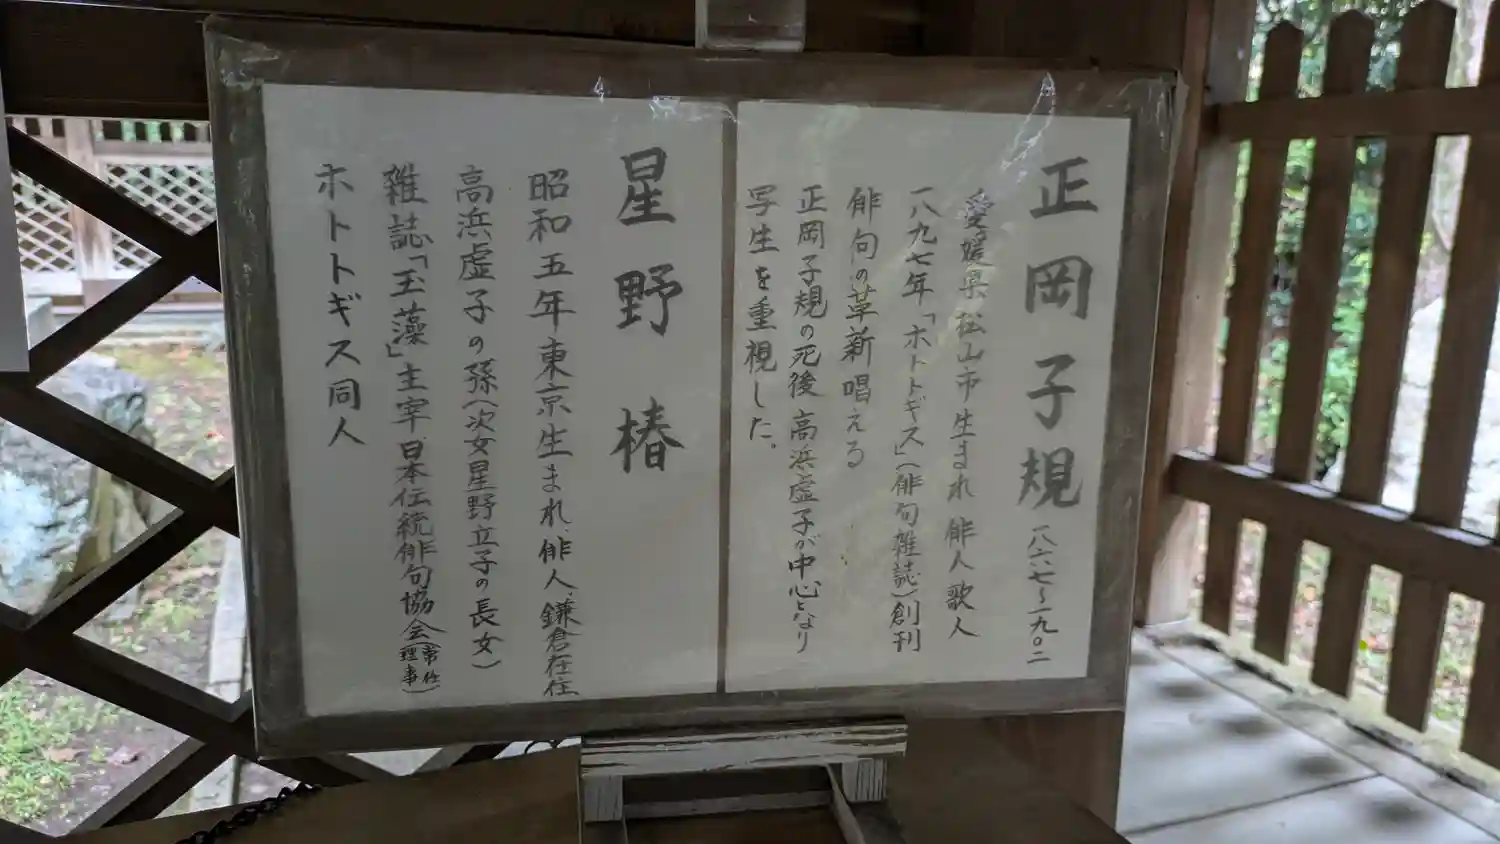 正岡子規 一八六七〜一九〇二
愛媛県松山市生まれ 俳人 歌人
一八九七年「ホトトギス」(俳句雑誌)創刊
俳句の革新唱える
正岡子規の死後 高浜虚子が中心となり
写生を重視した。
星野椿
昭和五年東京生まれ、俳人、鎌倉在住
高浜虚子の孫(次女星野立子の長女)
雑誌「玉藻」主宰 日本伝統俳句協会(常任理事)
ホトトギス同人